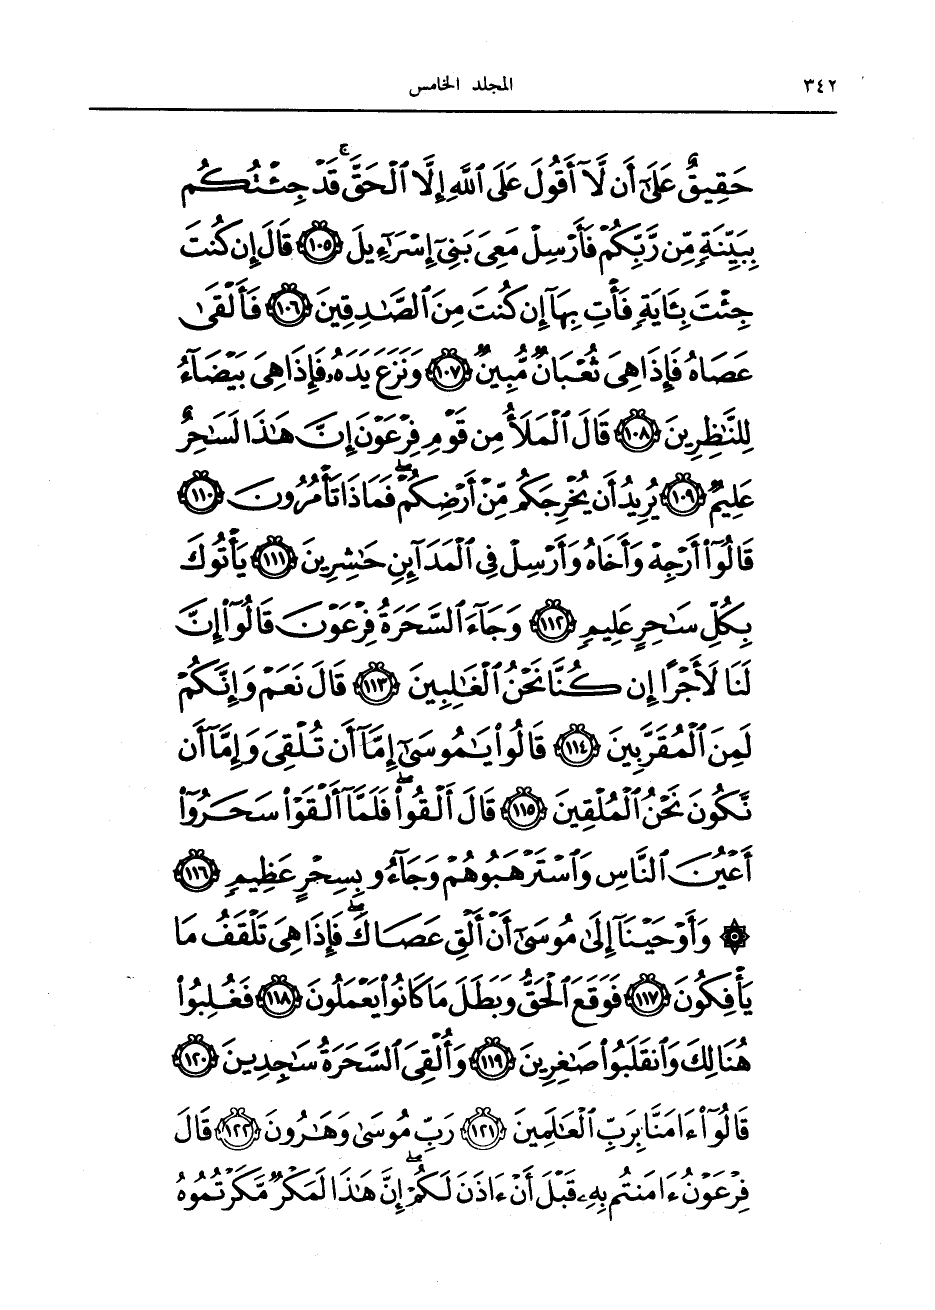 ٣٤٢ المجلد الخامس
حَقِيقٌ عَلَىٰٓ أَن لَّآ أَقُولَ عَلَى ٱللَّهِ إِلَّا ٱلْحَقَّ ۚ قَدْ جِئْتُكُم
بِبَيِّنَةٍ مِّن رَّبِّكُمْ فَأَرْسِلْ مَعِىَ بَنِىٓ إِسْرَٰٓءِيلَ ١٠٥ قَالَ إِن كُنتَ
جِئْتَ بِـَٔايَةٍ فَأْتِ بِهَآ إِن كُنتَ مِنَ ٱلصَّـٰدِقِينَ ١٠٦ فَأَلْقَىٰ
عَصَاهُ فَإِذَا هِىَ ثُعْبَانٌ مُّبِينٌ ١٠٧ وَنَزَعَ يَدَهُۥ فَإِذَا هِىَ بَيْضَآءُ
لِلنَّـٰظِرِينَ ١٠٨ قَالَ ٱلْمَلَأُ مِن قَوْمِ فِرْعَوْنَ إِنَّ هَـٰذَا لَسَـٰحِرٌ
عَلِيمٌ ١٠٩ يُرِيدُ أَن يُخْرِجَكُم مِّنْ أَرْضِكُمْ ۖ فَمَاذَا تَأْمُرُونَ ١١٠
قَالُوٓا۟ أَرْجِهْ وَأَخَاهُ وَأَرْسِلْ فِى ٱلْمَدَآئِنِ حَـٰشِرِينَ ١١١ يَأْتُوكَ
بِكُلِّ سَـٰحِرٍ عَلِيمٍ ١١٢ وَجَآءَ ٱلسَّحَرَةُ فِرْعَوْنَ قَالُوٓا۟ إِنَّ
لَنَا لَأَجْرًا إِن كُنَّا نَحْنُ ٱلْغَـٰلِبِينَ ١١٣ قَالَ نَعَمْ وَإِنَّكُمْ
لَمِنَ ٱلْمُقَرَّبِينَ ١١٤ قَالُوا۟ يَـٰمُوسَىٰٓ إِمَّآ أَن تُلْقِىَ وَإِمَّآ أَن
نَّكُونَ نَحْنُ ٱلْمُلْقِينَ ١١٥ قَالَ أَلْقُوا۟ ۖ فَلَمَّآ أَلْقَوْا۟ سَحَرُوٓا۟
أَعْيُنَ ٱلنَّاسِ وَٱسْتَرْهَبُوهُمْ وَجَآءُو بِسِحْرٍ عَظِيمٍ ١١٦
۞ وَأَوْحَيْنَآ إِلَىٰ مُوسَىٰٓ أَنْ أَلْقِ عَصَاكَ ۖ فَإِذَا هِىَ تَلْقَفُ مَا
يَأْفِكُونَ ١١٧ فَوَقَعَ ٱلْحَقُّ وَبَطَلَ مَا كَانُوا۟ يَعْمَلُونَ ١١٨ فَغُلِبُوا۟
هُنَالِكَ وَٱنقَلَبُوا۟ صَـٰغِرِينَ ١١٩ وَأُلْقِىَ ٱلسَّحَرَةُ سَـٰجِدِينَ ١٢٠
قَالُوٓا۟ ءَامَنَّا بِرَبِّ ٱلْعَـٰلَمِينَ ١٢١ رَبِّ مُوسَىٰ وَهَـٰرُونَ ١٢٢ قَالَ
فِرْعَوْنُ ءَامَنتُم بِهِۦ قَبْلَ أَنْ ءَاذَنَ لَكُمْ ۖ إِنَّ هَـٰذَا لَمَكْرٌ مَّكَرْتُمُوهُ